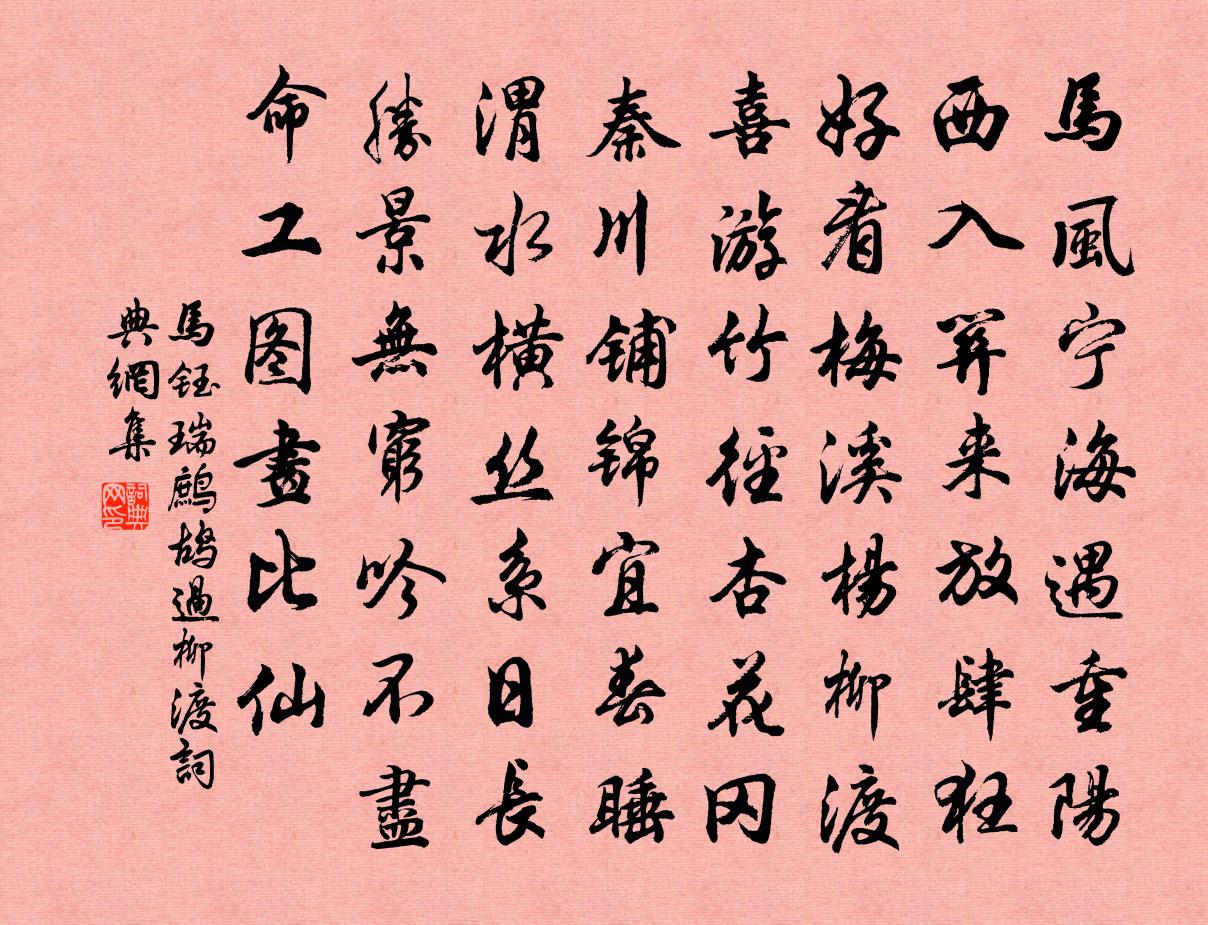 馬風宁海遇重陽
西入关来放肆狂
好看梅溪楊柳渡
喜游竹徑杏花冈
秦川铺锦宜春睡
渭水橫丝系日長
勝景無窮吟不盡
命工图畫比仙
馬鈺瑞鷓鴣過柳渡詞
典網集
詞典网印